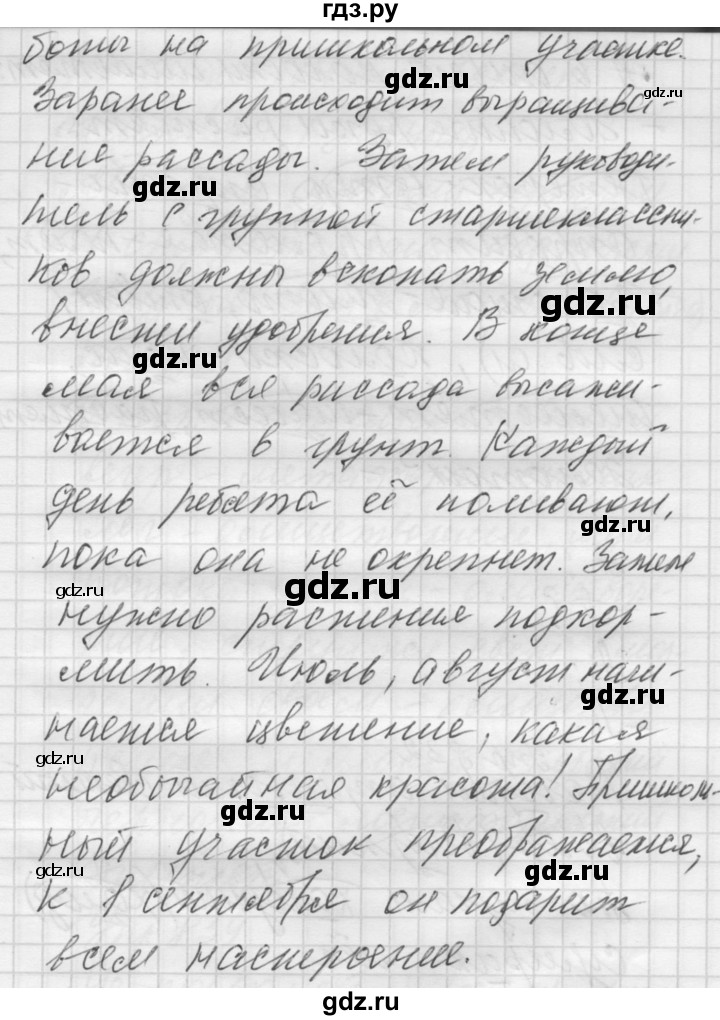 гдз.ру
боты на пришкольном участке.
Заранее происходит выращива-
ние рассады. Затем руководи-
тель с группой старшеклассни-
ков должны вскопать землю,
внести удобрения. В конце
мая вся рассада высажи-
вается в грунт. Каждый
день ребята её поливают,
пока она не окрепнет. Затем
нужно растения подкор-
мить. Июль, август начи-
нается цветение, какая
необычайная красота! Пришколь-
ный участок преображается,
к 1 сентября он подарит
всем настроение.
gdz.ru
gdz.ru
gdz.ru
gdz.ru
gdz.ru
gdz.ru
gdz.ru
gdz.ru
gdz.ru
gdz.ru
gdz.ru
gdz.ru
gdz.ru
gdz.ru